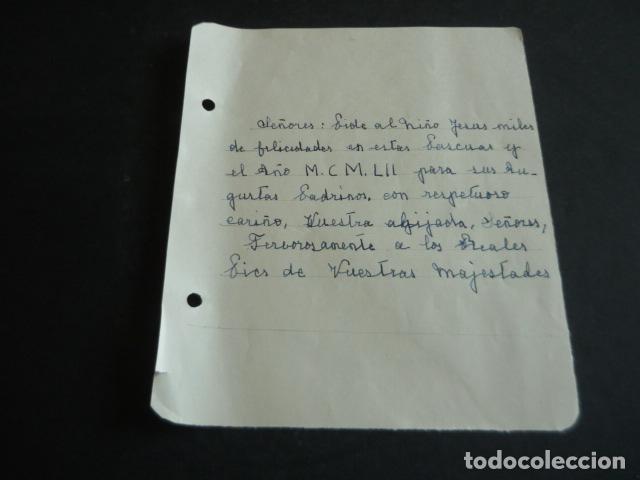 Señores: Pide al Niño Jesus miles
de felicidades en estas Pascuas y
el Año M.CM.LII para sus Au-
gustos Padrinos, con respetuoso
cariño, Vuestra ahijada, Señores,
Fervorosamente a los Reales
Pies de Vuestras Majestades
todocoleccion